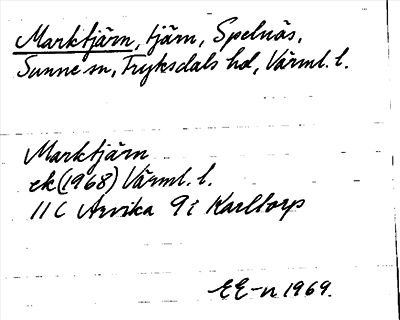 Marktjärn, tjärn, Spelnäs,
Sunne sn, Fryksdals hd, Värml. l.
Marktjärn
ek (1968) Värml. l.
11 C Arvika 9 i Karltorp
EE-n 1969.